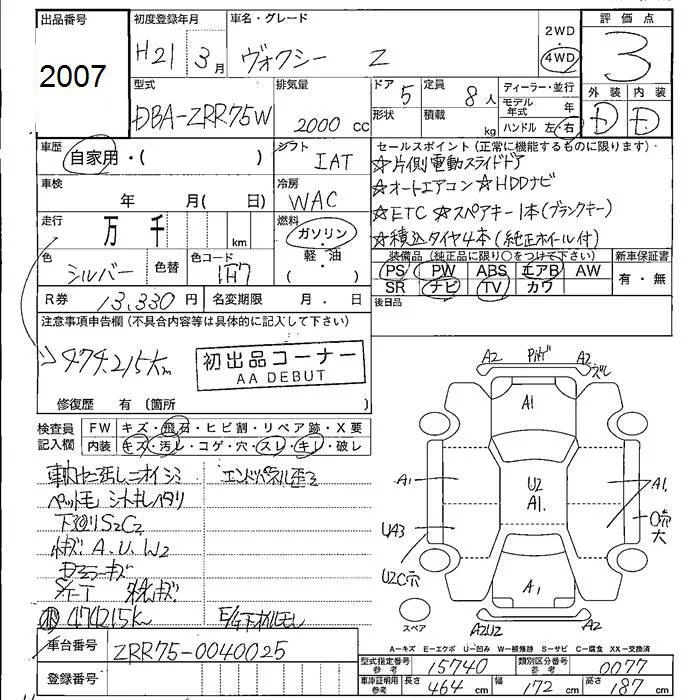 出品番号
2007
初度登録年月
H21 3月
車名・グレード
ヴォクシー Z
2WD
4WD
評価点
3
外装 内装
D D
型式
DBA-ZRR75W
排気量
2000 cc
ドア 5
形状
定員 8人
積載 kg
ディーラー・並行
モデル年式 年
ハンドル 左・右
車歴
自家用・( )
シフト
IAT
車検
年 月( 日)
冷房
WAC
走行
万 千 km
燃料
ガソリン
軽・油
( )
色
シルバー
色替
色コード
1F7
R券 13,330円
名変期限 月 . 日
セールスポイント(正常に機能するものに限ります)
☆片側電動スライドドア
☆オートエアコン☆HDDナビ
☆ETC ☆スペアキー1本(ブランクキー)
☆積込タイヤ4本(純正ホイール付)
装備品(純正品に限り○をつけて下さい)
PS PW ABS エアB AW
SR ナビ TV カワ
新車保証書
有・無
後日品
注意事項申告欄(不具合内容等は具体的に記入して下さい)
474,215km
初出品コーナー
AA DEBUT
修復歴 有(箇所 )
検査員記入欄
FW キズ・飛石・ヒビ割・リペア跡・X要
内装 キズ・汚レ・コゲ・穴・スレ・キレ・破レ
ペット毛
下廻りS2C2
A、U、W2
474215km
車台番号
ZRR75-0040025
登録番号
A2 A2 ズレ
A1
A1
U2
A1.
A1.
UA3
U2C穴
大
A1
スペア
A2U2
A2
A-キズ E-エクボ U-凹み W-補修跡 S-サビ C-腐食 XX-交換済
型式指定番号 参考 15740
類別区分番号 参考 0077
車庫証明用 参考 長さ 464 cm 幅 172 cm 高さ 187 cm